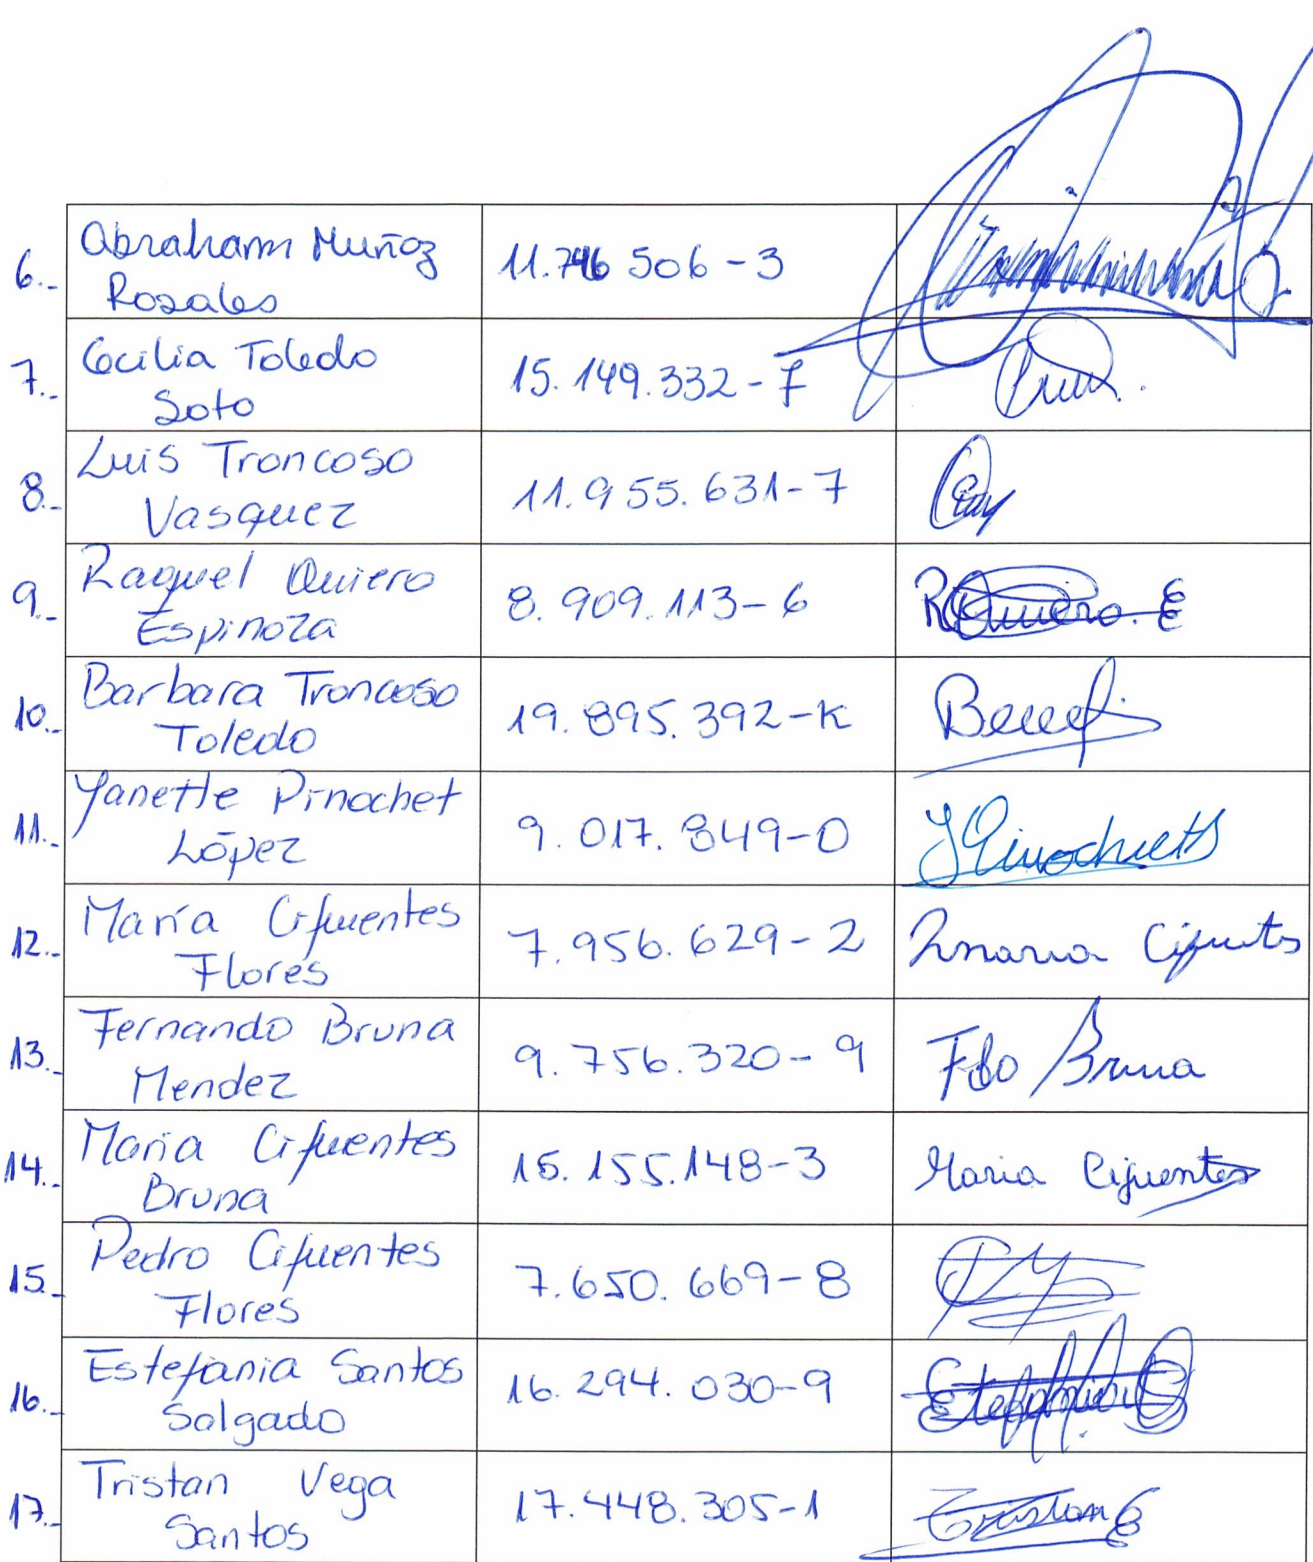 6.- Abraham Muñoz
Rosales
11.746 506-3
7.- Cecilia Toledo
Soto
15.149.332-7
8.- Luis Troncoso
Vasquez
11.955.631-7
9.- Raquel Quiero
Espinoza
8.909.113-6
RQuiero.E
10.- Barbara Troncoso
Toledo
19.895.392-K
11.- Yanette Pinochet
López
9.017.849-0
12.- María Cifuentes
Flores
7.956.629-2
Maria Cifuentes
13.- Fernando Bruna
Mendez
9.756.320-9
Fdo Bruna
14.- Maria Cifuentes
Bruna
15.155.148-3
Maria Cifuentes
15.- Pedro Cifuentes
Flores
7.650.669-8
16.- Estefania Santos
Salgado
16.294.030-9
17.- Tristan Vega
Santos
17.448.305-1